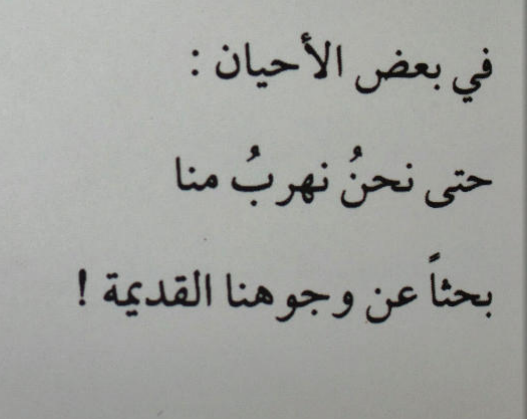 في بعض الأحيان :
حتى نحنُ نهربُ منا
بحثاً عن وجوهنا القديمة !